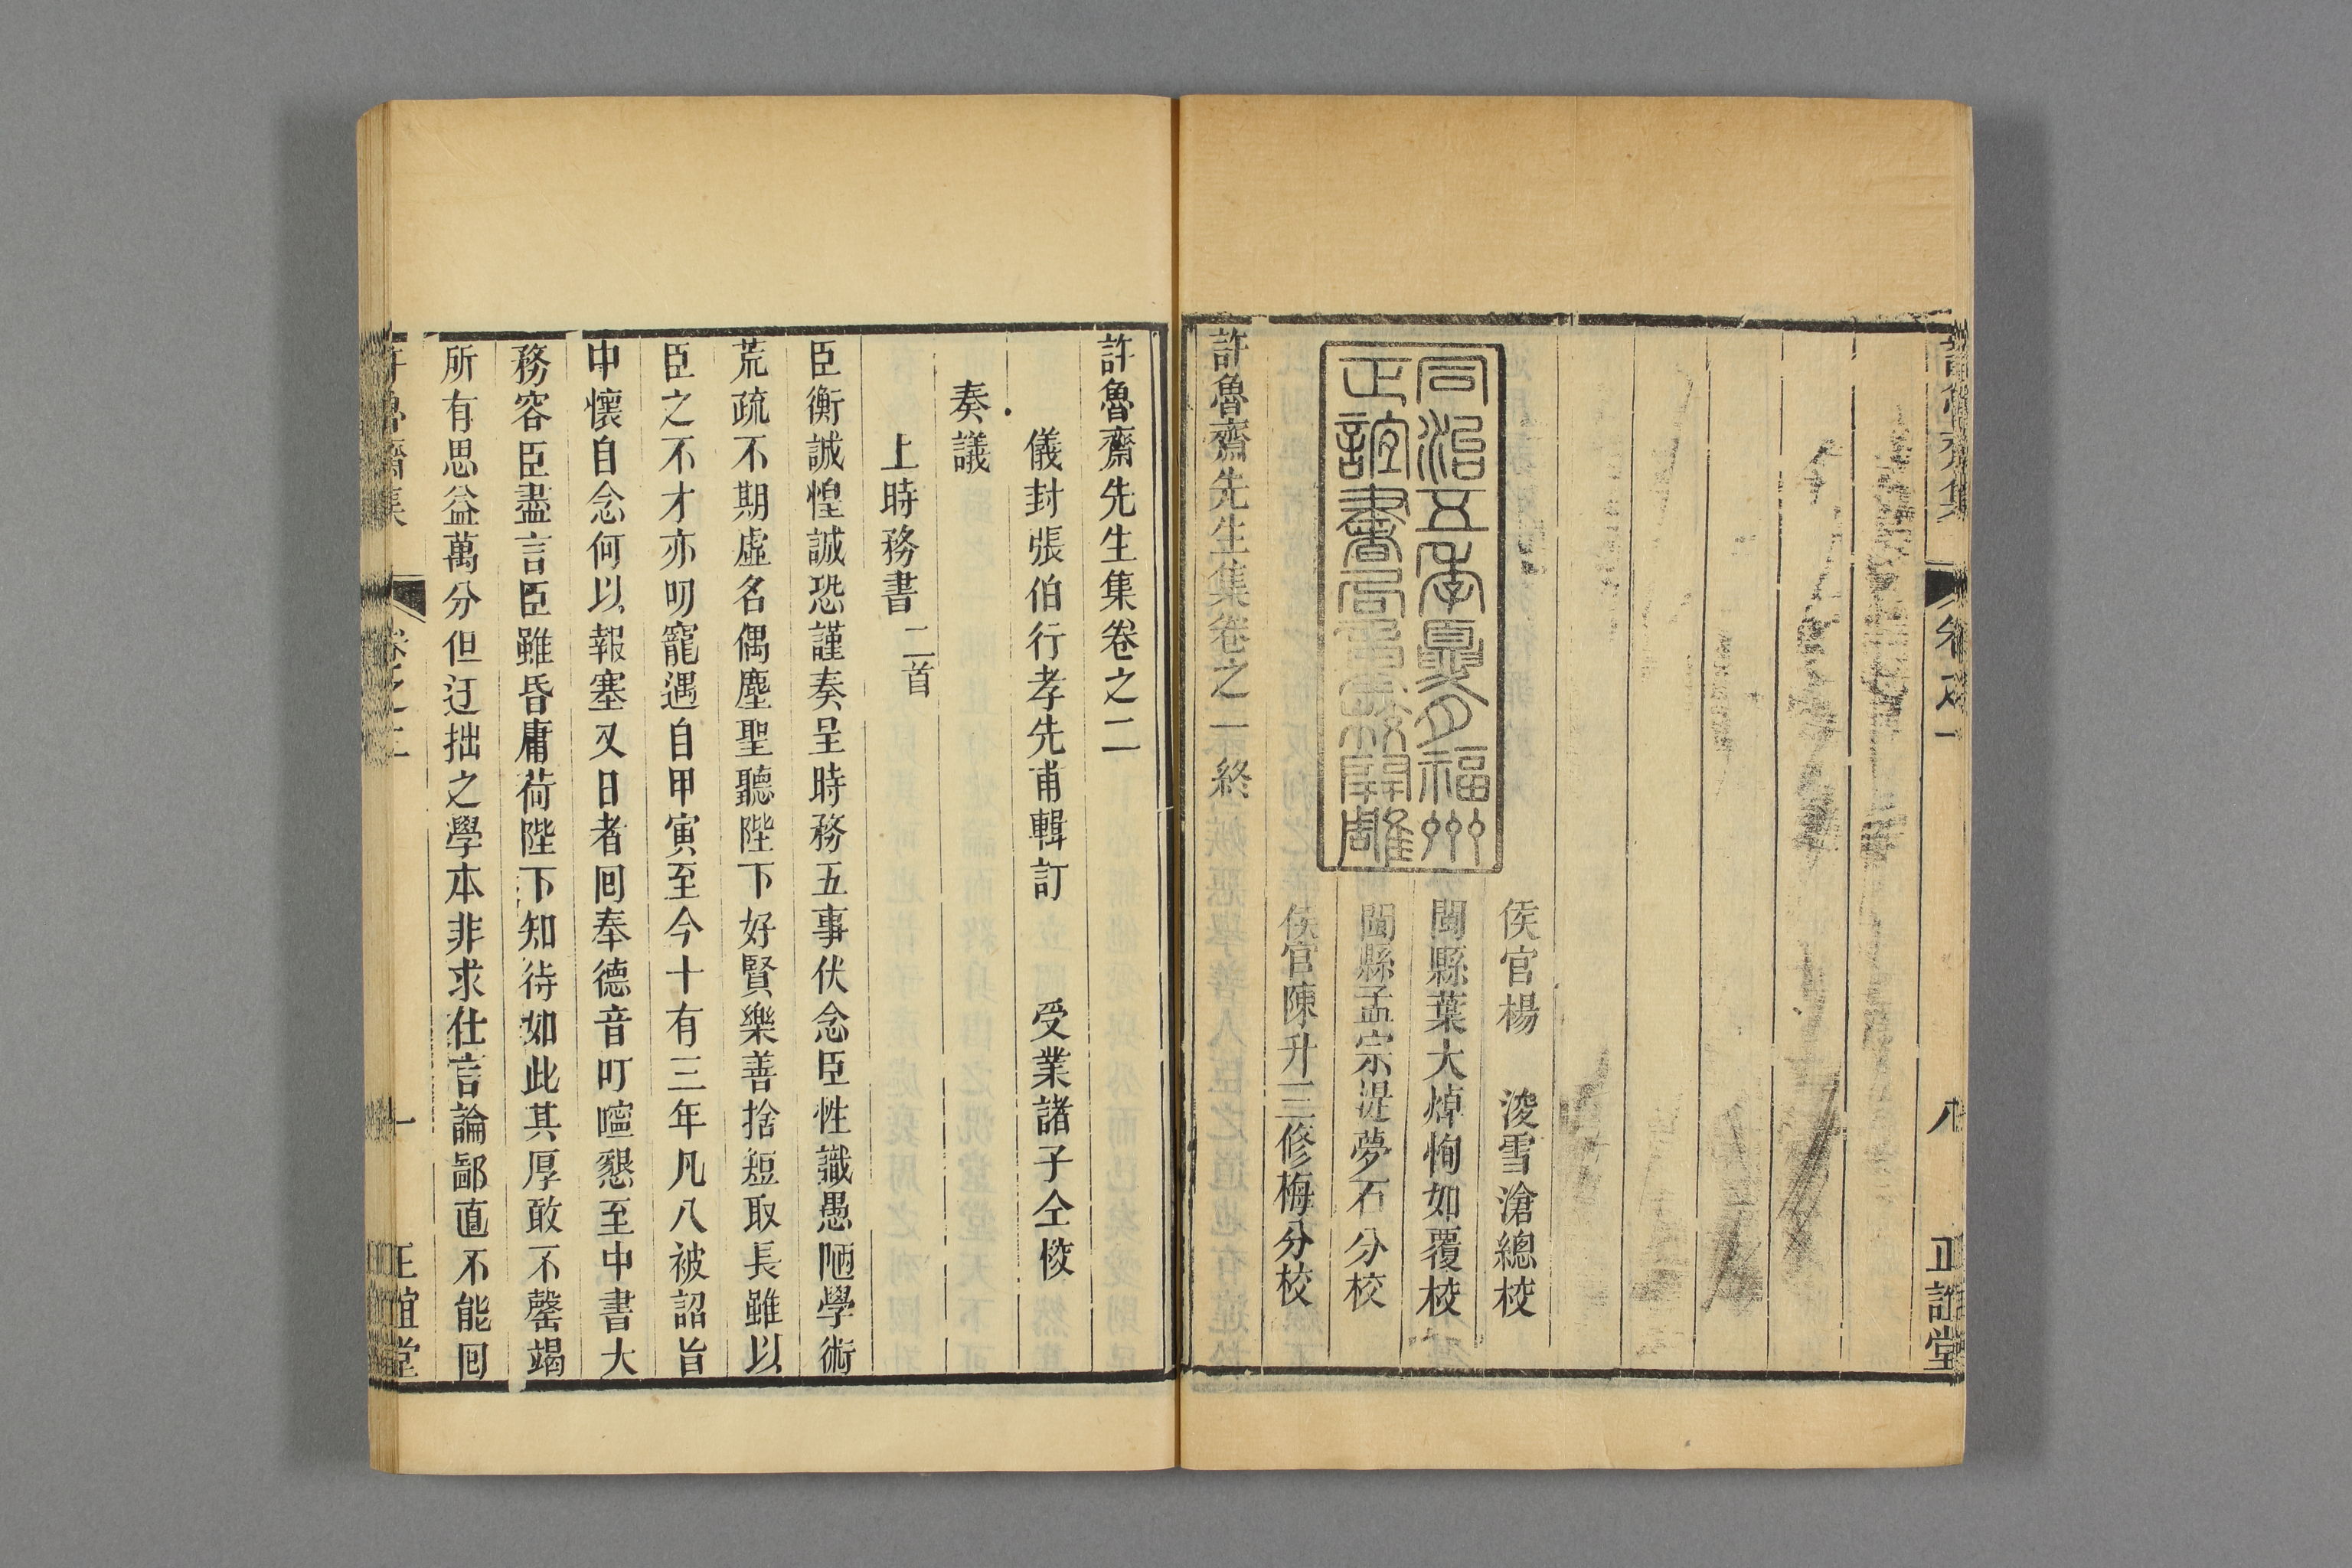 許魯齋集 卷之一 八 正誼堂
侯官楊 浚雪滄總校
閩縣葉大焯恂如覆校
閩縣孟宗湜夢石分校
侯官陳升三修梅分校
同治五年夏月福州
正誼書局重校開雕
許魯齋先生集卷之一終
許魯齋先生集卷之二
儀封張伯行孝先甫輯訂 受業諸子仝校
奏議
上時務書二首
臣衡誠惶誠恐謹奏呈時務五事伏念臣性識愚陋學術
荒疏不期虛名偶塵聖聽陛下好賢樂善捨短取長雖以
臣之不才亦叨寵遇自甲寅至今十有三年凡八被詔旨
中懷自念何以報塞又日者囘奉德音叮嚀懇至中書大
務容臣盡言臣雖昏庸荷陛下知待如此其厚敢不罄竭
所有思益萬分但迂拙之學本非求仕言論鄙直不能囘
許魯齋集 卷之二 一 正誼堂